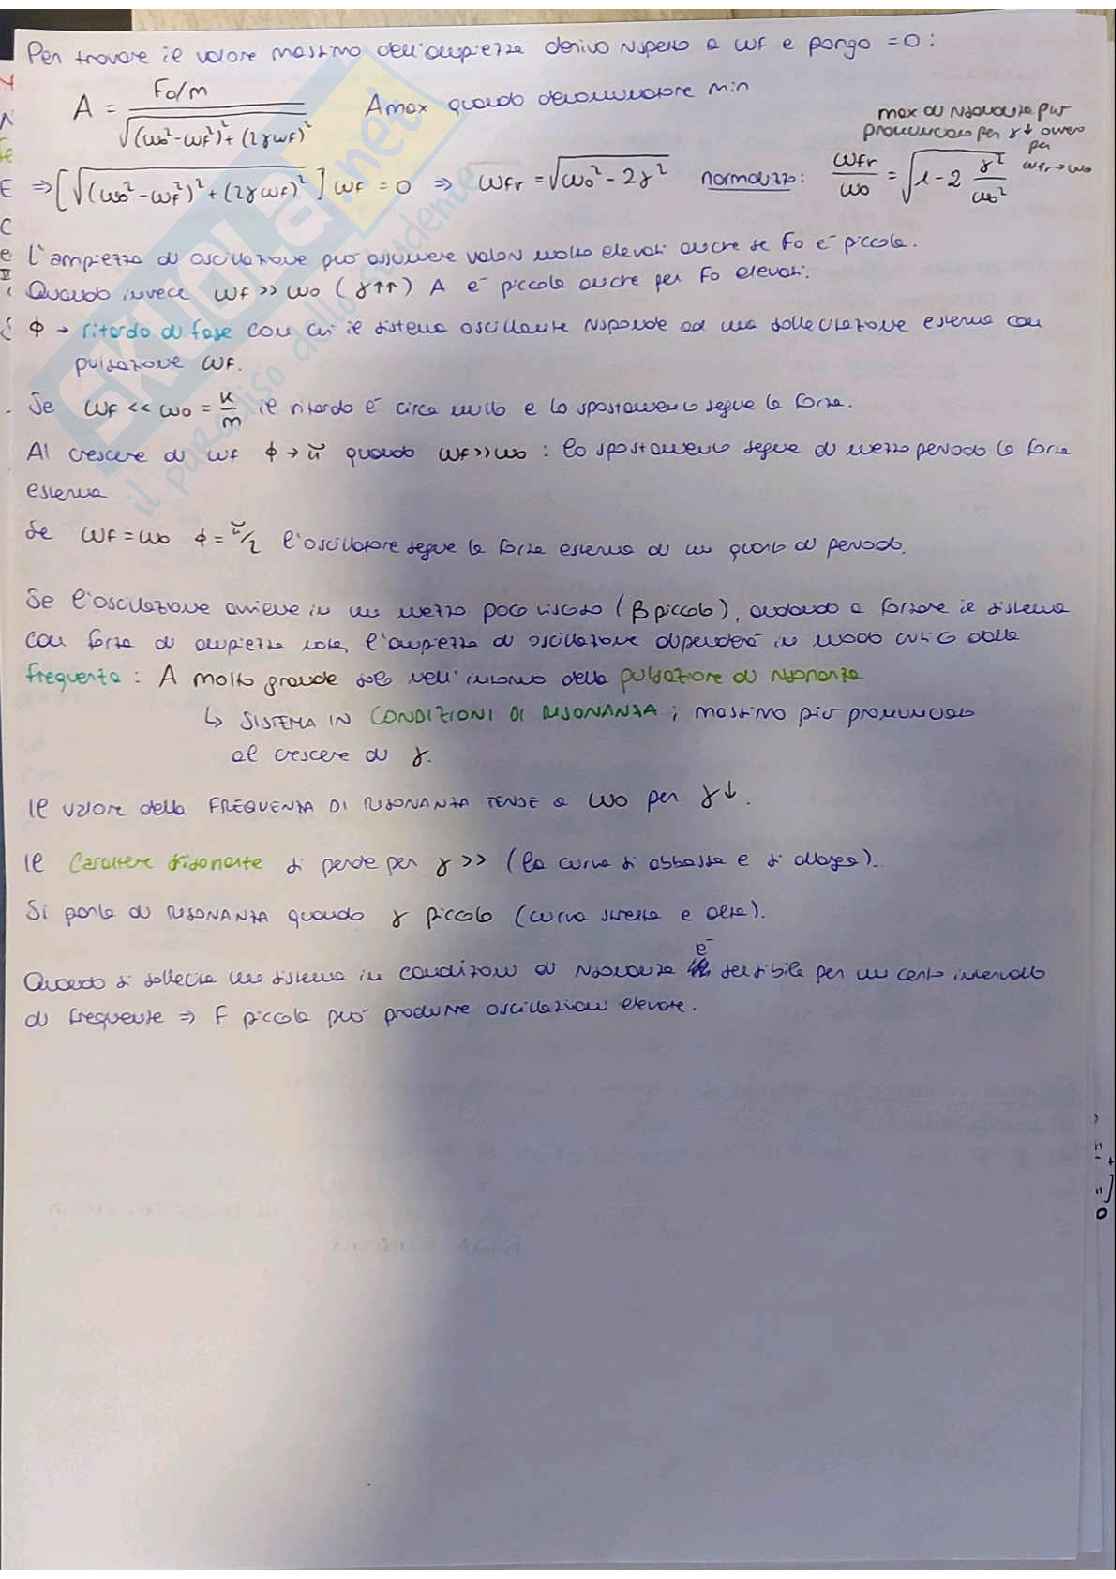 Per trovare il valore massimo dell'ampiezza derivo rispetto a ωf e pongo =0:
A = F0/m / √((ω0²-ωf²)²+(2γωf)²) Amax quando denominatore min
max di risonanza più
pronunciato per γ↓ ovvero
per
ωfr→ω0
⇒[√((ω0²-ωf²)²+(2γωf)²)] ωf = 0 ⇒ ωfr = √(ω0²-2γ²) normalizzo: ωfr/ω0 = √(1-2 γ²/ω0²)
L'ampiezza di oscillazione può assumere valori molto elevati anche se F0 è piccola.
Quando invece ωf >> ω0 (γ↑↑) A è piccolo anche per F0 elevati.
ϕ → ritardo di fase con cui il sistema oscillante risponde ad una sollecitazione esterna con
pulsazione ωf.
Se ωf << ω0 = k/m il ritardo è circa nullo e lo spostamento segue la forza.
Al crescere di ωf ϕ→π quando ωf>>ω0 : lo spostamento segue di mezzo periodo la forza
esterna
Se ωf=ω0 ϕ=π/2 l'oscillatore segue la forza esterna di un quarto di periodo.
Se l'oscillazione avviene in un mezzo poco viscoso (β piccolo), andando a forzare il sistema
con forza di ampiezza nota, l'ampiezza di oscillazione dipenderà in modo critico dalla
frequenza : A molto grande solo nell'intorno della pulsazione di risonanza
↳ SISTEMA IN CONDIZIONI DI RISONANZA ; massimo più pronunciato
al crescere di γ.
Il valore della FREQUENZA DI RISONANZA TENDE a ω0 per γ↓.
Il Carattere risonante si perde per γ >> (la curva si abbassa e si allarga).
Si parla di RISONANZA quando γ piccolo (curva stretta e alta).
Quando si sollecita un sistema in condizioni di risonanza è sensibile per un certo intervallo
di frequenze ⇒ F piccola può produrre oscillazioni elevate.
SKUOLA.net
il paradiso dello studente